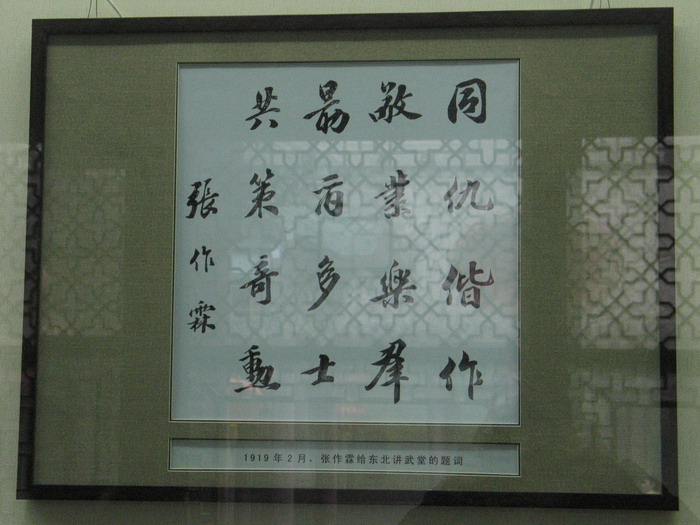 同仇偕作
敬業樂群
勗爾多士
共策奇勳
張作霖
1919年2月，张作霖给东北讲武堂的题词